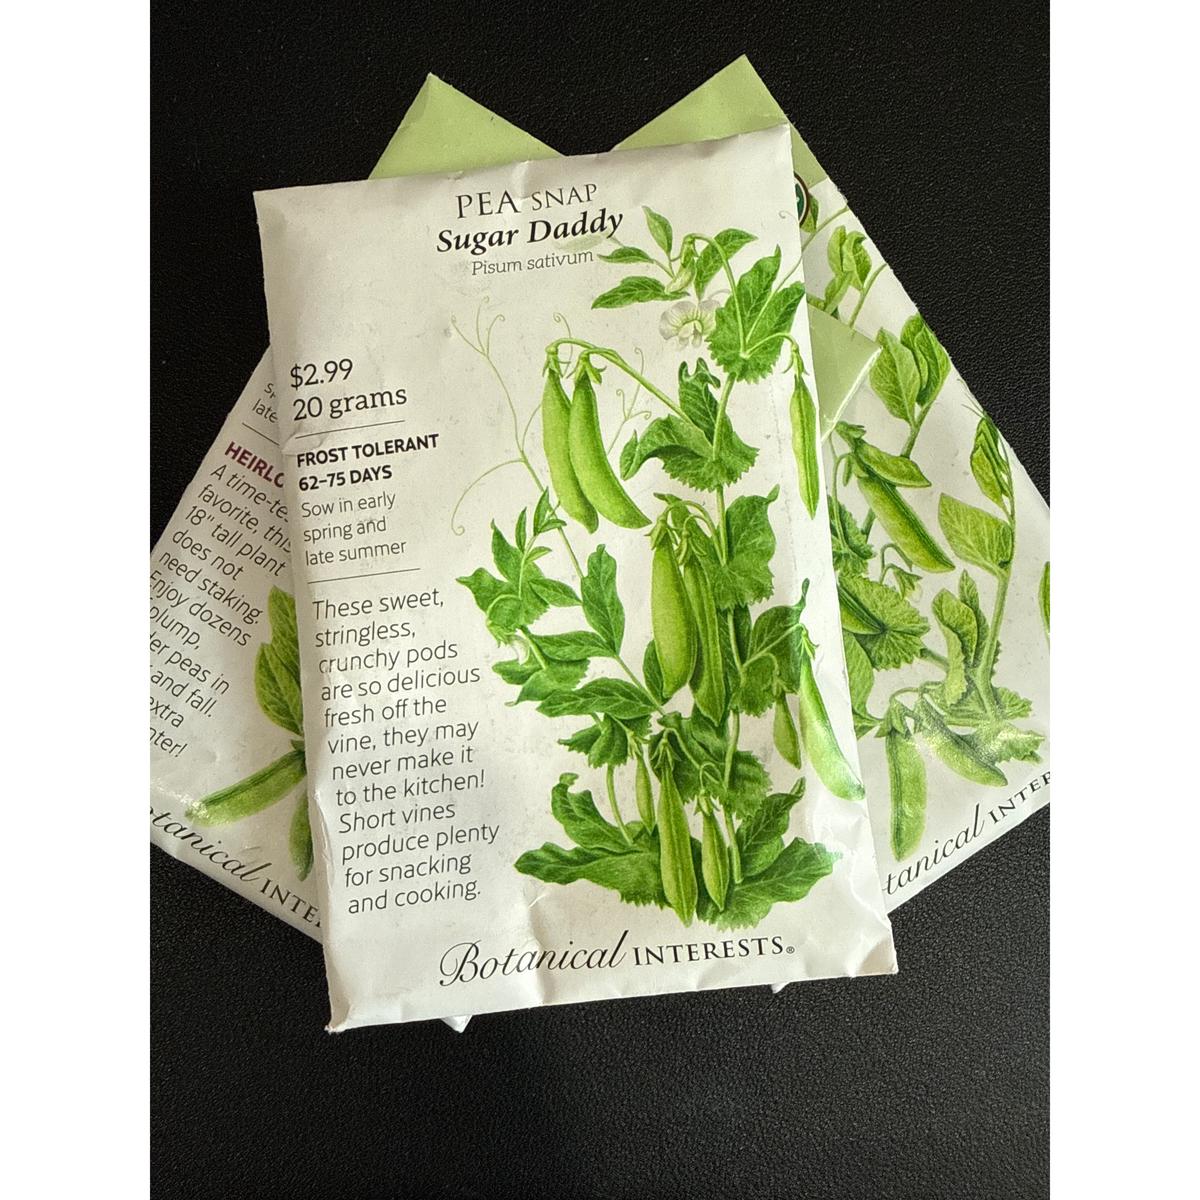 PEA SNAP
Sugar Daddy
Pisum sativum
$2.99
20 grams
FROST TOLERANT
62–75 DAYS
Sow in early
spring and
late summer
These sweet,
stringless,
crunchy pods
are so delicious
fresh off the
vine, they may
never make it
to the kitchen!
Short vines
produce plenty
for snacking
and cooking.
Botanical INTERESTS®
late
HEIRLO
A time-tes
favorite, this
18" tall plant
does not
need staking.
Enjoy dozens
plump,
der peas in
and fall.
extra
nter!
otanical INTE
tanical INTER